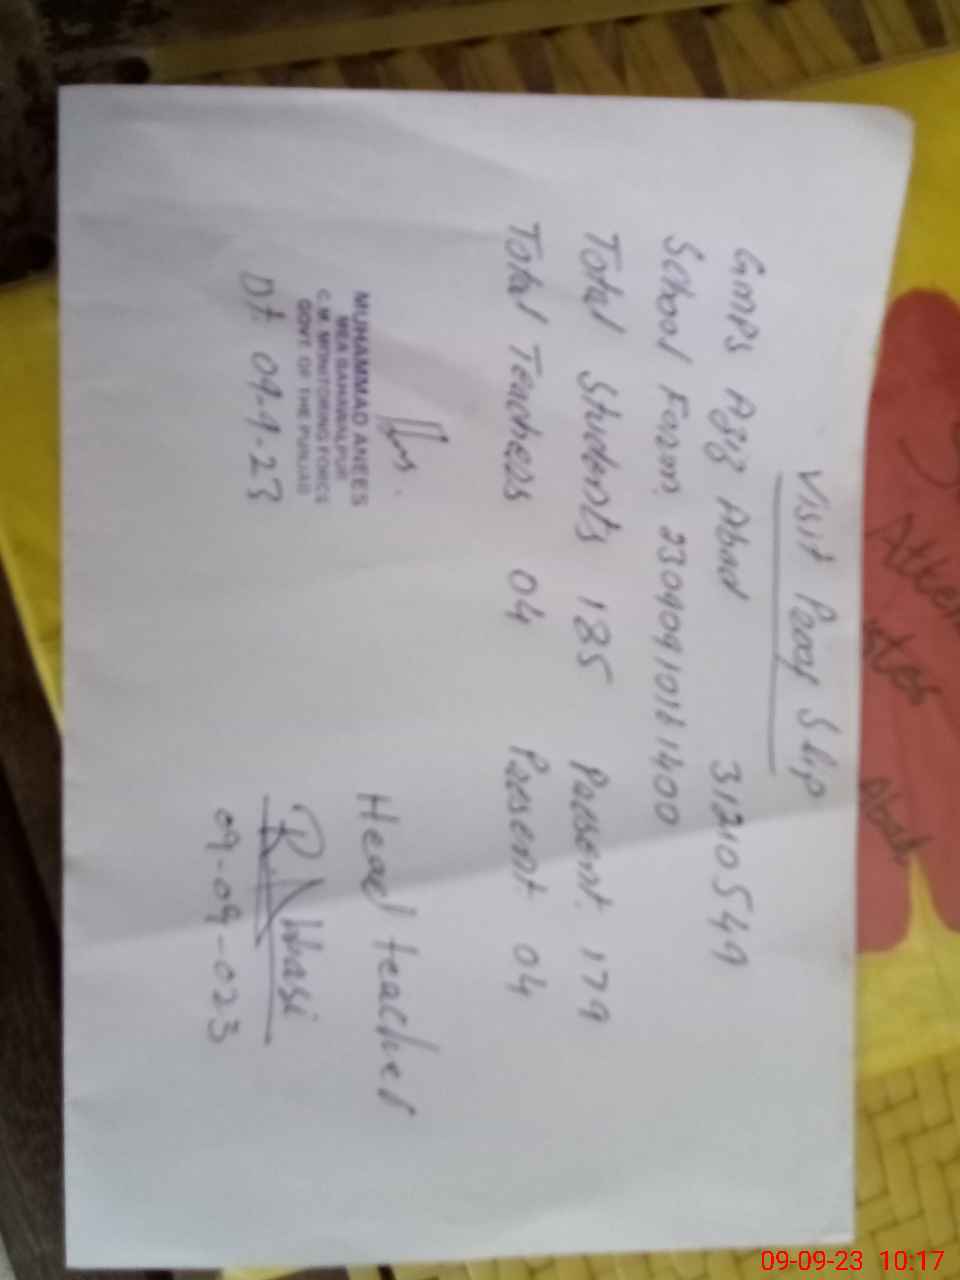 Visit Proof Slip
GMPS Aziz Abad 31210549
School Form 2309091011400
Total Students 185 Present 179
Total Teachers 04 Present 04
MUHAMMAD ANEES
MEA BAHAWALPUR
C.M. MONITORING FORCE
GOVT. OF THE PUNJAB
Dt. 09-9-23
Head teacher
Abbasi
09-09-023
Abad
09-09-23 10:17